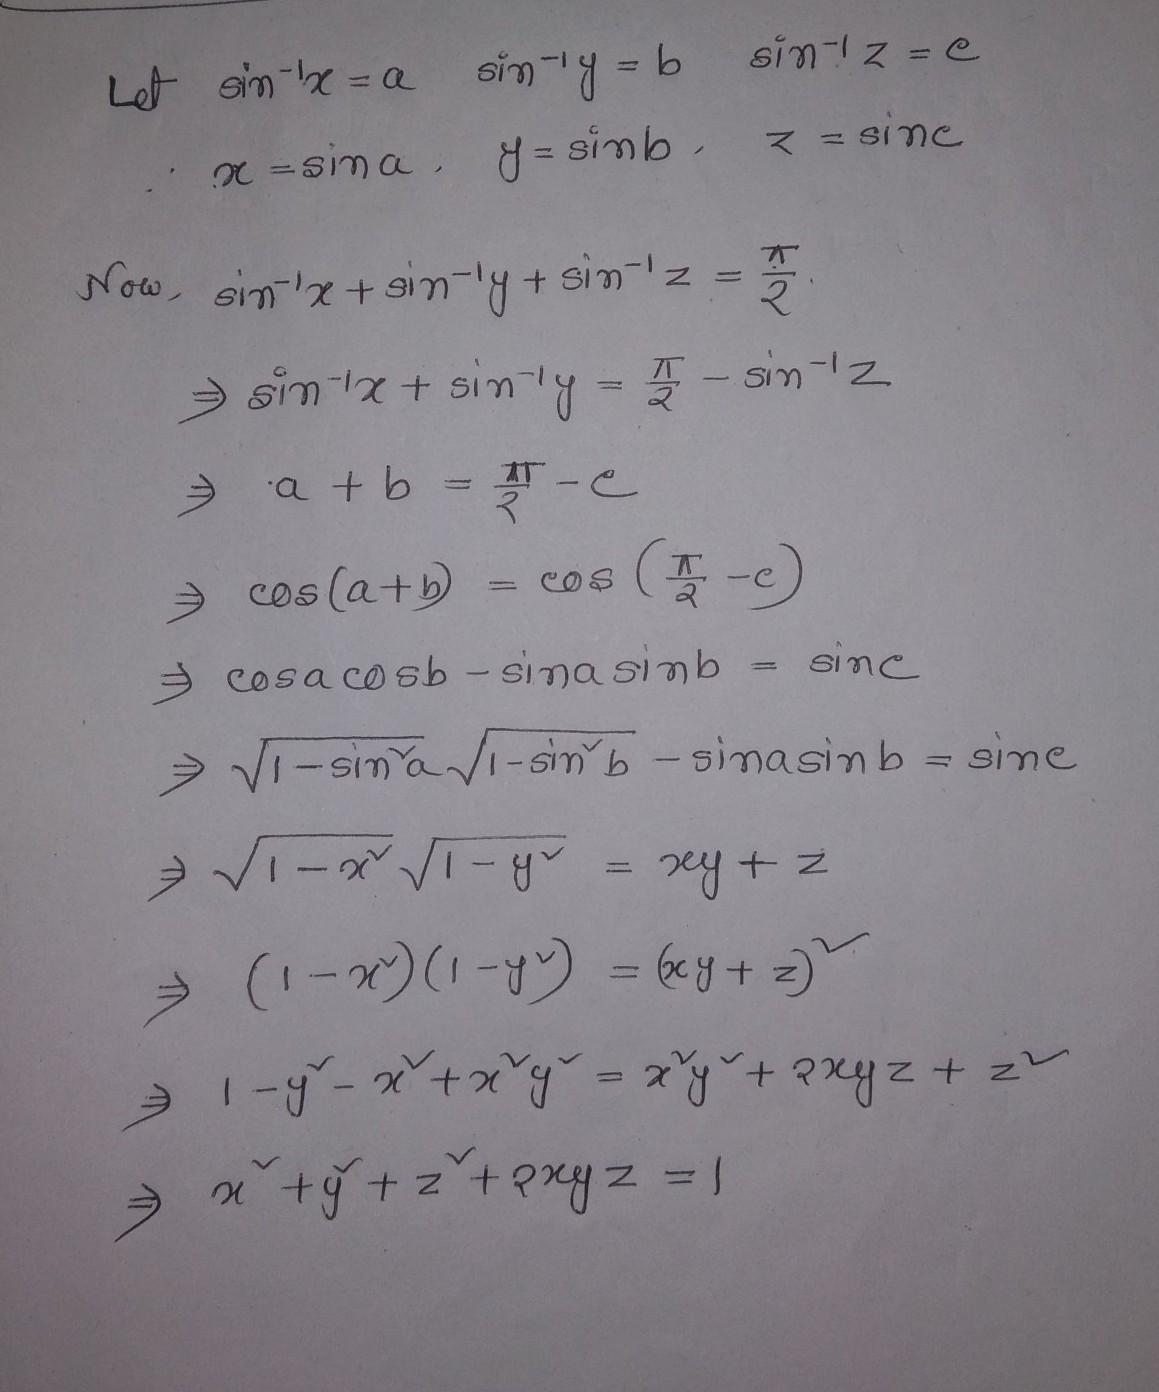 Let sin⁻¹x = a sin⁻¹y = b sin⁻¹z = c
∴ x = sina, y = sinb, z = sinc
Now, sin⁻¹x + sin⁻¹y + sin⁻¹z = π/2.
⇒ sin⁻¹x + sin⁻¹y = π/2 − sin⁻¹z
⇒ a + b = π/2 − c
⇒ cos(a+b) = cos(π/2 − c)
⇒ cosa cosb − sina sinb = sinc
⇒ √(1−sin²a) √(1−sin²b) − sina sinb = sinc
⇒ √(1−x²) √(1−y²) = xy + z
⇒ (1−x²)(1−y²) = (xy + z)²
⇒ 1−y²−x²+x²y² = x²y² + 2xyz + z²
⇒ x² + y² + z² + 2xyz = 1